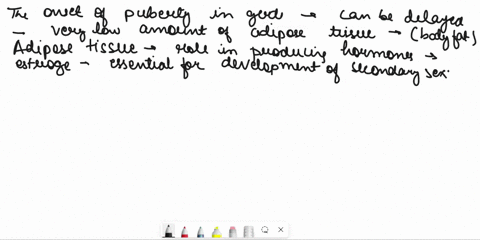 The onset of puberty in girls → can be delayed
- very low amount of adipose tissue → (body fat)
Adipose tissue → role in producing hormones →
estroge - essential for development of secondary sex.